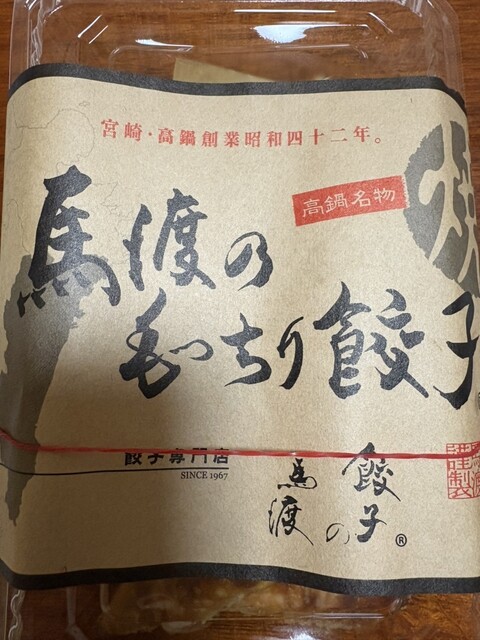 宮崎・高鍋創業昭和四十二年。
高鍋名物
焼
馬渡の
もっちり餃子
餃子専門店
SINCE 1967
餃子の
馬渡
®
謹製